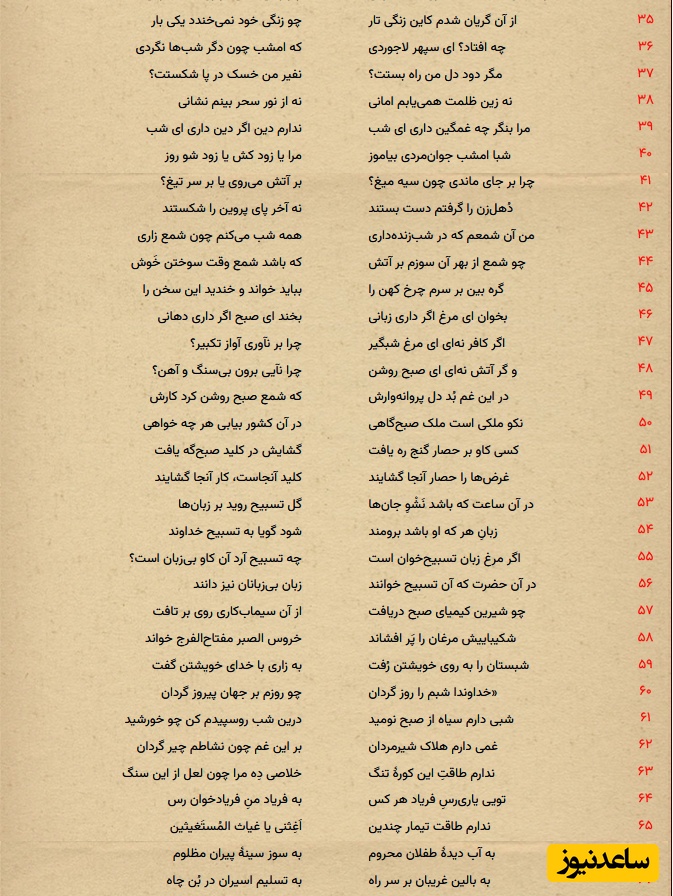 ۳۵ از آن گریان شدم کاین زنگی تار چو زنگی خود نمی‌خندد یکی بار
۳۶ چه افتاد؟ ای سپهر لاجوردی که امشب چون دگر شب‌ها نگردی
۳۷ مگر دود دل من راه بستت؟ نفیر من خسک در پا شکستت؟
۳۸ نه زین ظلمت همی‌یابم امانی نه از نور سحر بینم نشانی
۳۹ مرا بنگر چه غمگین داری ای شب ندارم دین اگر دین داری ای شب
۴۰ شبا امشب جوان‌مردی بیاموز مرا یا زود کش یا زود شو روز
۴۱ چرا بر جای ماندی چون سیه میغ؟ بر آتش می‌روی یا بر سر تیغ؟
۴۲ دُهل‌زن را گرفتم دست بستند نه آخر پای پروین را شکستند
۴۳ من آن شمعم که در شب‌زنده‌داری همه شب می‌کنم چون شمع زاری
۴۴ چو شمع از بهر آن سوزم بر آتش که باشد شمع وقت سوختن خَوش
۴۵ گره بین بر سرم چرخ کهن را بباید خواند و خندید این سخن را
۴۶ بخوان ای مرغ اگر داری زبانی بخند ای صبح اگر داری دهانی
۴۷ اگر کافر نه‌ای ای مرغ شبگیر چرا بر نآوری آواز تکبیر؟
۴۸ و گر آتش نه‌ای ای صبح روشن چرا نآیی برون بی‌سنگ و آهن؟
۴۹ در این غم بُد دل پروانه‌وارش که شمع صبح روشن کرد کارش
۵۰ نکو ملکی است ملک صبح‌گاهی در آن کشور بیابی هر چه خواهی
۵۱ کسی کاو بر حصار گنج ره یافت گشایش در کلید صبح‌گه یافت
۵۲ غرض‌ها را حصار آنجا گشایند کلید آنجاست، کار آنجا گشایند
۵۳ در آن ساعت که باشد نَشْوِ جان‌ها گل تسبیح روید بر زبان‌ها
۵۴ زبانِ هر که او باشد برومند شود گویا به تسبیح خداوند
۵۵ اگر مرغ زبان تسبیح‌خوان است چه تسبیح آرد آن کاو بی‌زبان است؟
۵۶ در آن حضرت که آن تسبیح خوانند زبان بی‌زبانان نیز دانند
۵۷ چو شیرین کیمیای صبح دریافت از آن سیماب‌کاری روی بر تافت
۵۸ شکیباییش مرغان را پَر افشاند خروس الصبر مفتاح‌الفرج خواند
۵۹ شبستان را به روی خویشتن رُفت به زاری با خدای خویشتن گفت
۶۰ «خداوندا شبم را روز گردان چو روزم بر جهان پیروز گردان
۶۱ شبی دارم سیاه از صبح نومید درین شب روسپیدم کن چو خورشید
۶۲ غمی دارم هلاک شیرمردان بر این غم چون نشاطم چیر گردان
۶۳ ندارم طاقتِ این کورهٔ تنگ خلاصی دِه مرا چون لعل از این سنگ
۶۴ تویی یاری‌رسِ فریاد هر کس به فریاد منِ فریادخوان رس
۶۵ ندارم طاقت تیمار چندین اَغِثنی یا غیاث المُستَغیثین
به آب دیدهٔ طفلان محروم به سوز سینهٔ پیران مظلوم
به بالین غریبان بر سر راه به تسلیم اسیران در بُن چاه
ساعدنیوز